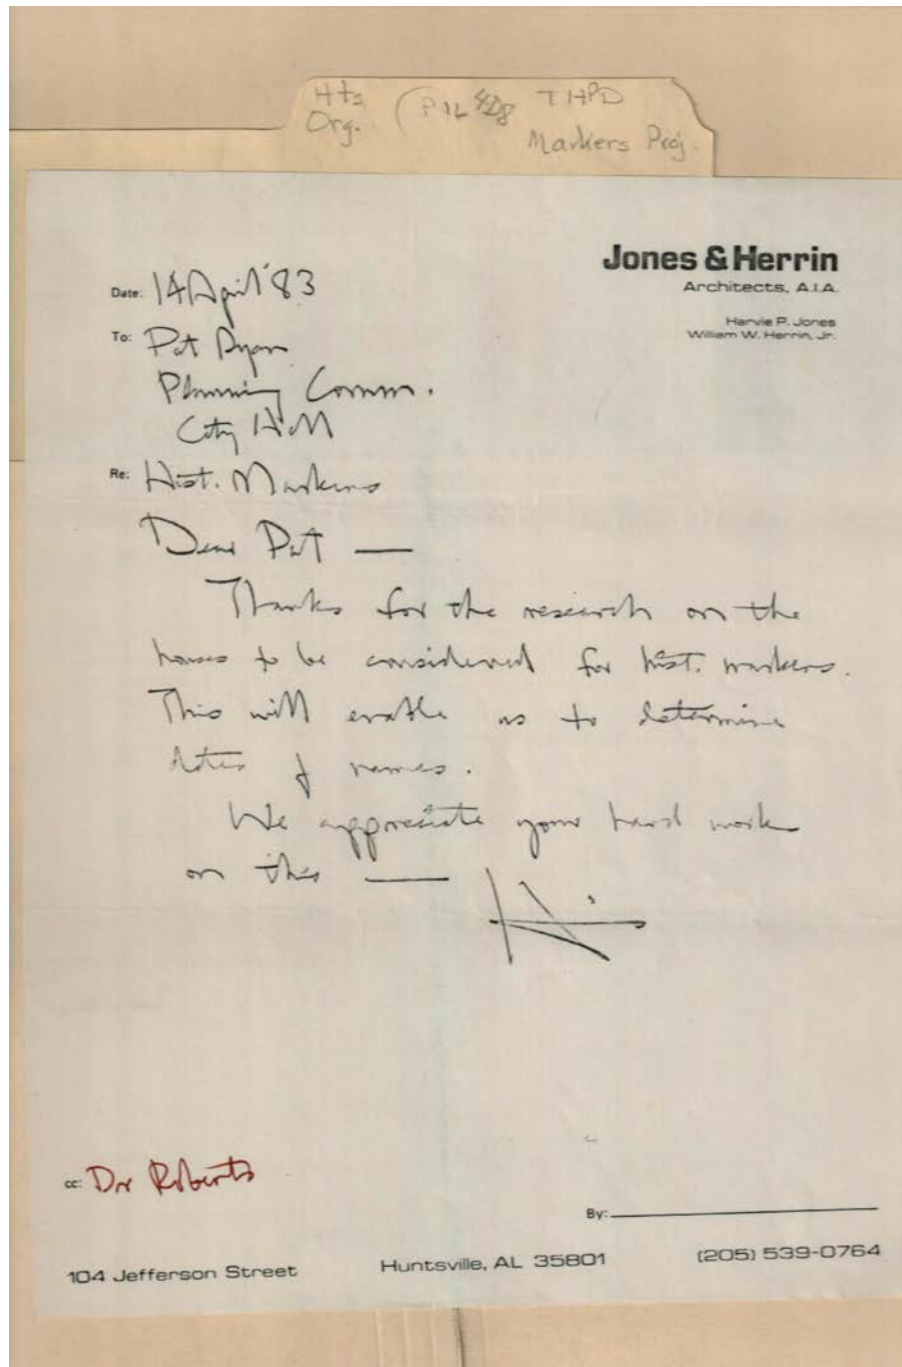 Hts. THPD
Org. Markers Proj.
Jones & Herrin
Architects, A.I.A.
Harvie P. Jones
William W. Herrin, Jr.
Date: 14 April '83
To: Pat Ryan
Planning Comm.
City Hall
Re: Hist. Markers
Dear Pat —
Thanks for the research on the
houses to be considered for hist. markers.
This will enable us to determine
dates & names.
We appreciate your hard work
on this —
cc: Dr Roberts
By:
104 Jefferson Street Huntsville, AL 35801 (205) 539-0764